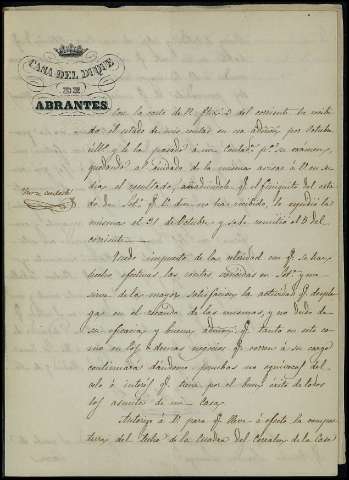 CASA DEL DUQUE
DE
ABRANTES.
Con la carta de V. fha 2 del corriente he recibi-
do el estado de mis cuentas en esa admon por
y lo he pasado a mi contadª pª su examen,
quedando al cuidado de la misma avisar a V. en se
dias el resultado, añadiendole qe el finiquito del esta-
do de qe V. dice no han recibido, lo espidió la
misma el 31 de Octubre y se le remitio el 3 del
corriente.
Quedo impuesto de la celeridad con qe se han
hecho efectivas las rentas vencidas en y me
sirve de la mayor satisfaccion la actividad qe desple-
ga en el recaudo de las mismas, y no dudo de
su eficacia y buena admon qe tanto en este co-
mo en los demas negocios qe corren a su cargo
continuará dandome pruebas no equivocas del
celo é interés qe tiene por el buen exito de todos
los asuntos de mi Casa.
Autorizo á V. para qe lleve á efecto la compos-
tura del techo de la Cuadra del Corralon de la Casa